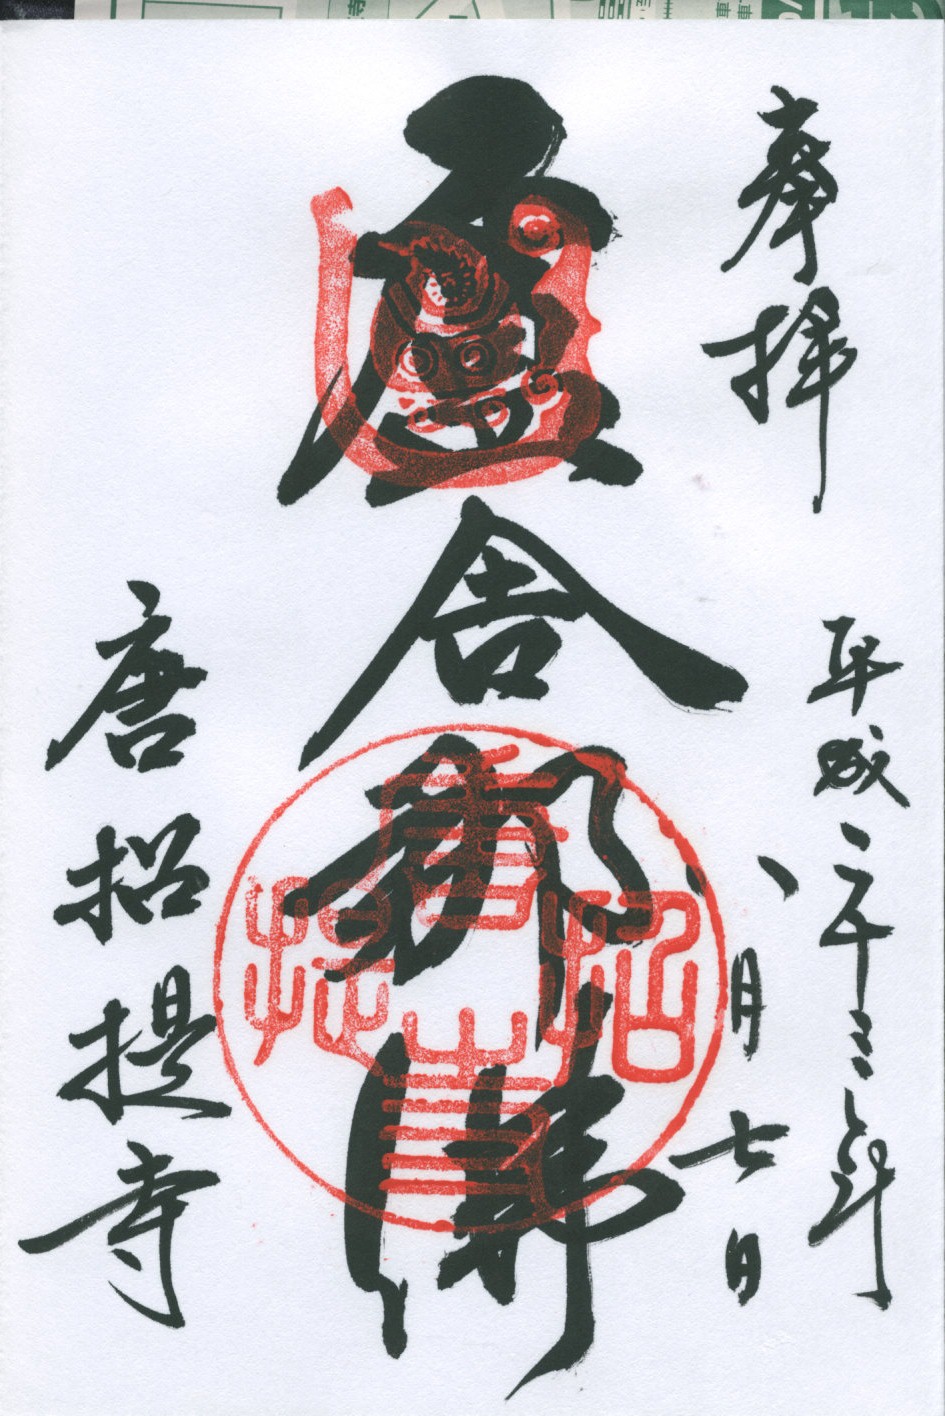 奉拝
平成二十三年
八月七日
盧舎那佛
唐招提寺
唐招提寺